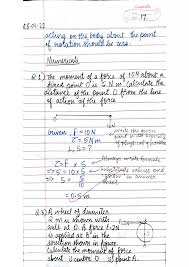 17
28-04-22
acting on the body about the point
of rotation should be zero.
Numericals
Q.1) The moment of a force of 10N about a
fixed point O is 5 N m. Calculate the
distance of the point O from the line
of action of the force
Given, F = 10N
τ = 5Nm
S = ?
τ = F × S
⇒ 5 = 10 × S
⇒ S = 5/10
= 0.5 m
Q.3) A wheel of diameter
2 m is shown with
axle at O. A force F = 2N
is applied at B in the
direction shown in figure.
Calculate the moment of force
about centre O